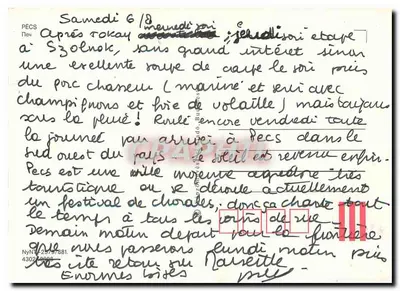 Samedi 6/8
PECS
Печ
Après Tokay mercredi soi, jeudi soir etape
à Szolnok, sans grand intéret sinon
une excellente soupe de carpe le soir puis
du porc chasseur (mariné et cuit avec
champignons et foie de volaille) mais toujours
sous la pluie! Roulé encore vendredi toute
la journée par arriver à Pecs dans le
sud ouest du pays le soleil est revenu enfin.
Pecs est une ville moyenne agréable très
touristique où se déroule actuellement
un festival de chorales, donc ça chante tout
le temps à tous les coins de rue.
Demain matin depart par la frontière
que nous passerons lundi matin puis
très vite retour sur Marseille
Enormes bises